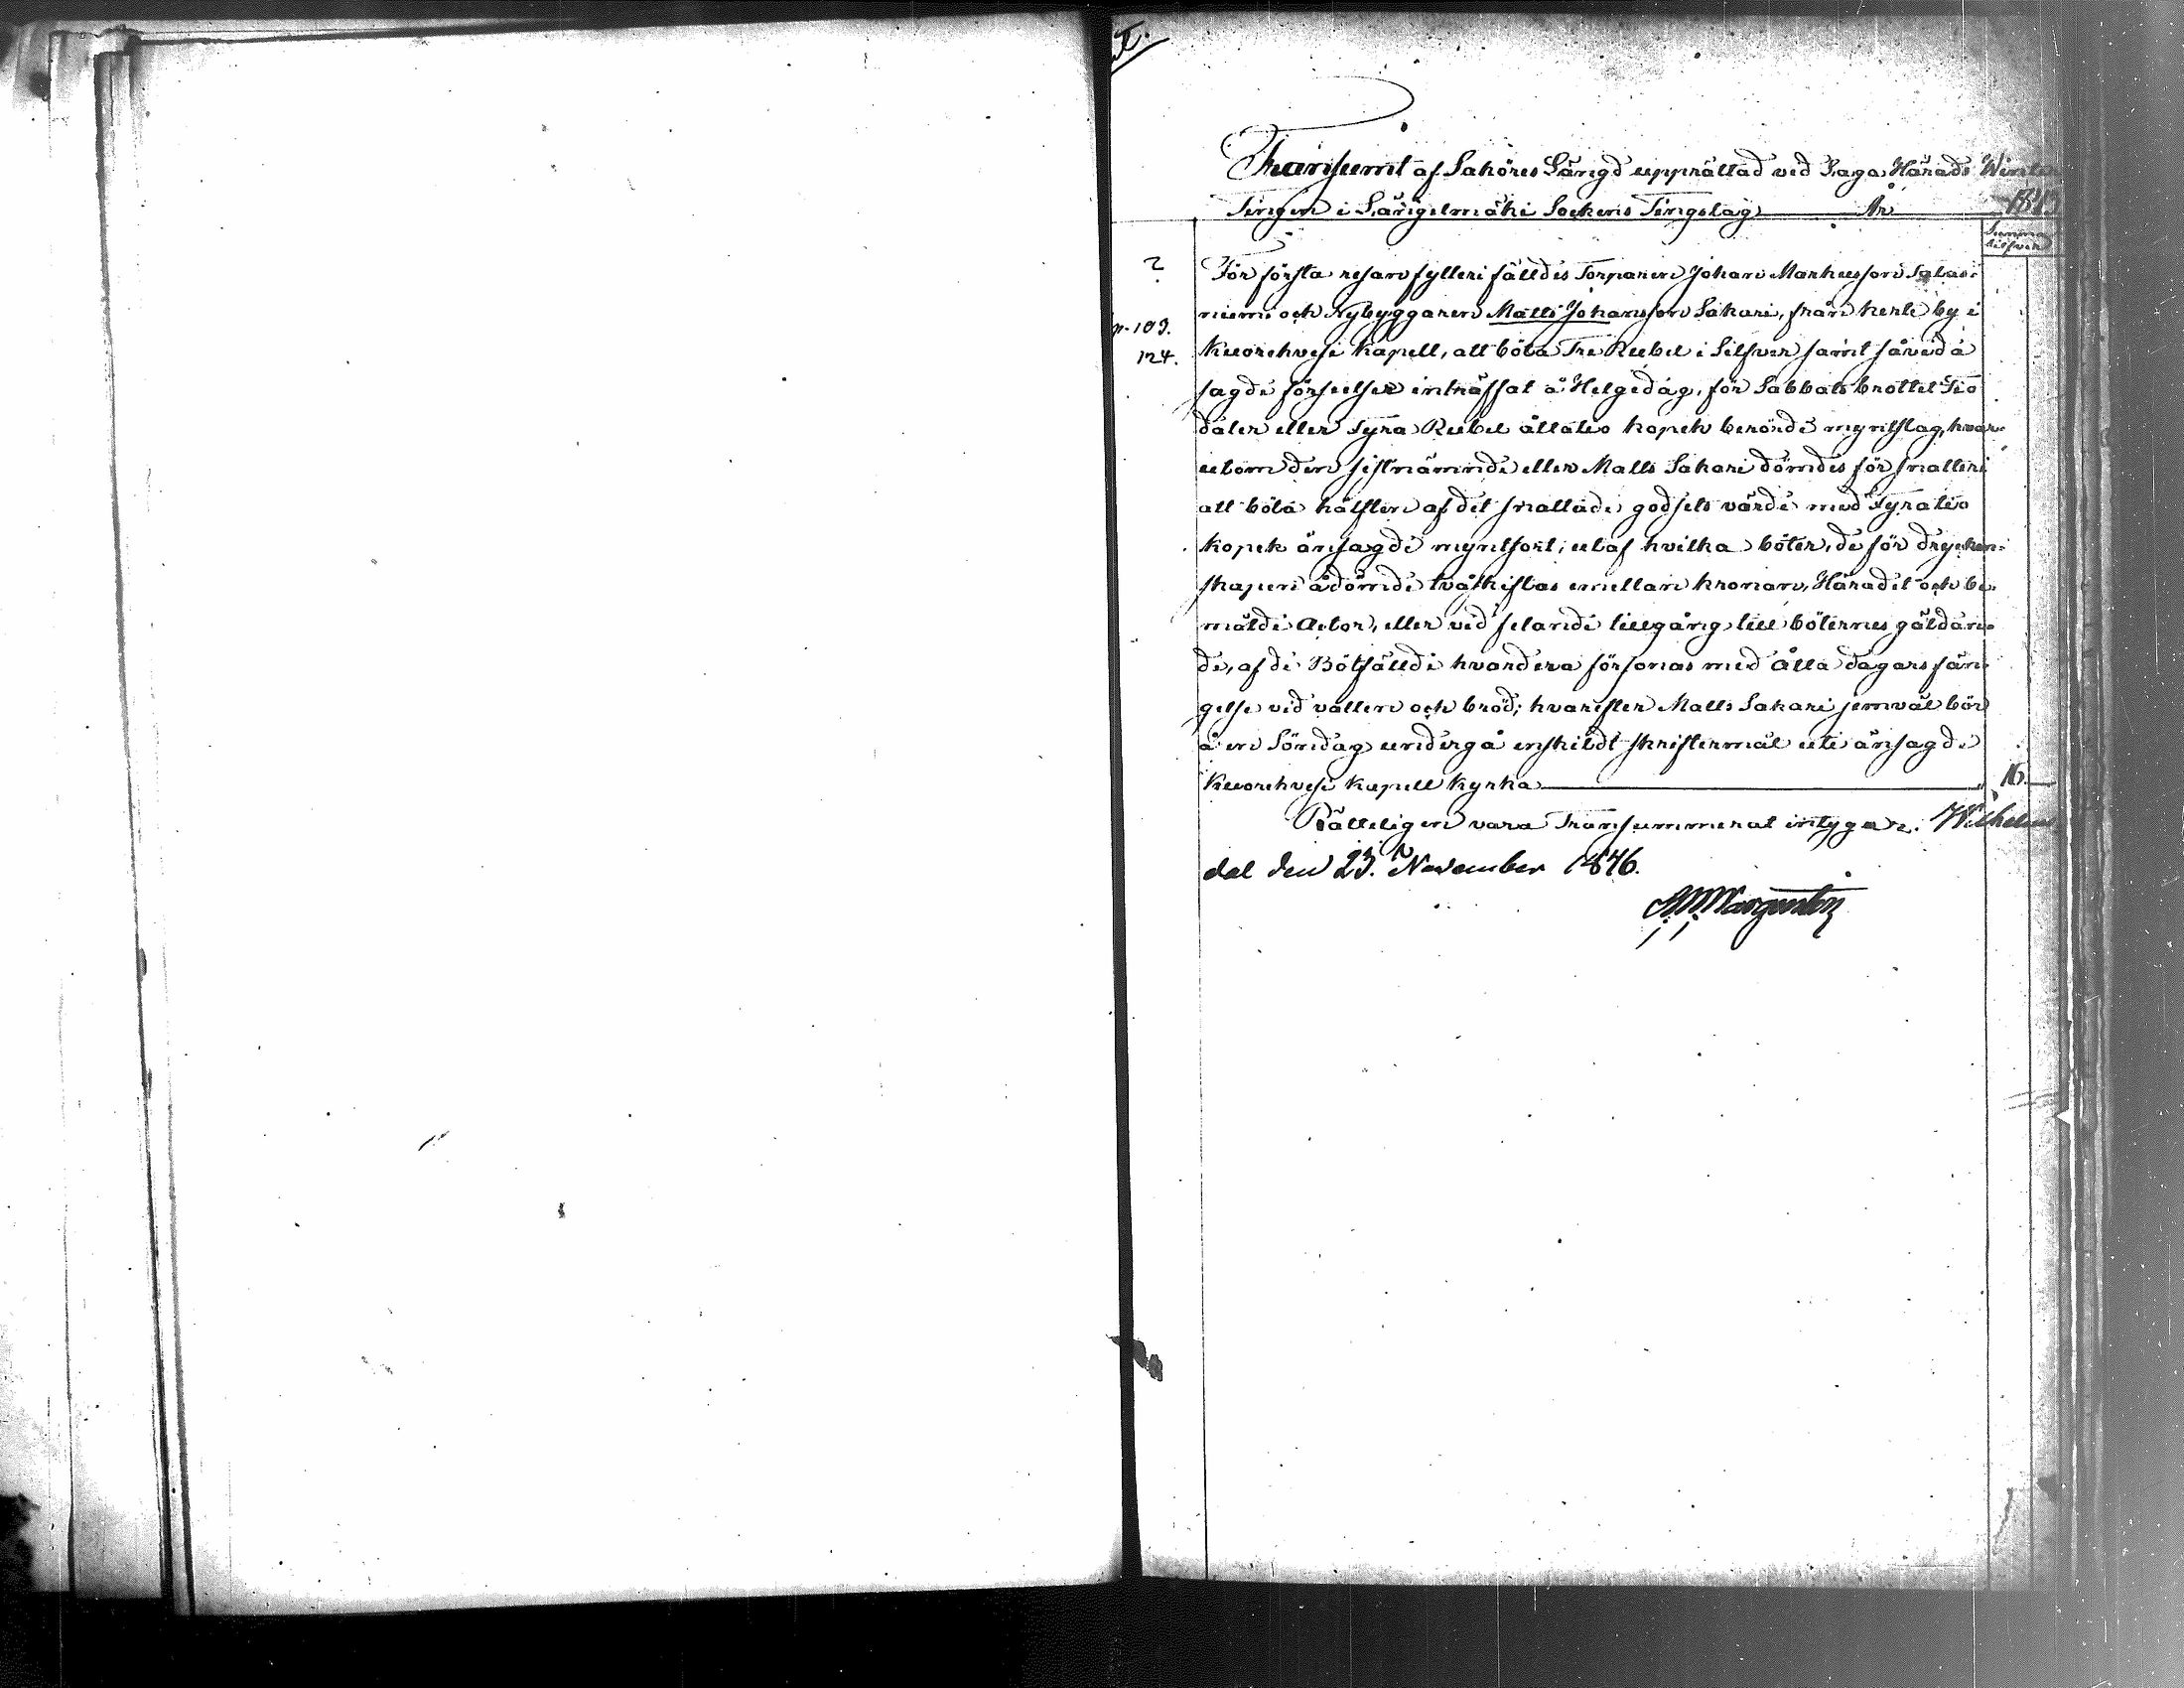 Transumt af Saköres Längd upprättad vid Laga Härads Winter
Tingen i Längelmäki Sockens Tingslag År
Summa
Silfver
2
För första resan fylleri fälldes Torparen Johan Markusson Salas-
niemi och Nybyggaren Matts Johansson Sakari, från by i
p. 109.
124.
Kuorehvesi Kapell, att böta Tre Rubel i Silfver samt såvida
sagde förseelser inträffat å Helgedag, för Sabbatsbrottet Tio
daler eller Fyra Rubel åttatio kopek berörde myntslag, hvar-
utom den sistnämnde eller Matts Sakari dömdes för snatteri
att böta hälften af det snattade godsets värde med Fyratio
Kopek ansagde myntsort; utaf hvilka böter, de för drycken-
skapen ådömde tvåskiftas emellan Kronan, Häradet och be-
mälde Actor, eller vid felande tillgång till böternes gäldan-
de, af de Bötfällde hvardera försonas med Åtta dagars fän-
gelse vid vatten och bröd; hvarefter Matts Sakari jemväl bör
å en Söndag undergå enskildt skriftermål uti ansagde
Kuorehvesi Kapell Kyrka 16.
Rätteligen vara Transummerat intygar. Wilhelms
dal den 23. November 1846.